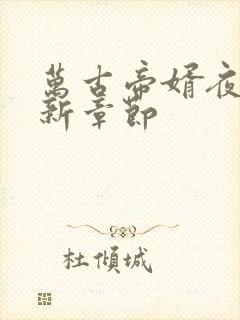 萬古帝婿夜
新章節
杜傾城